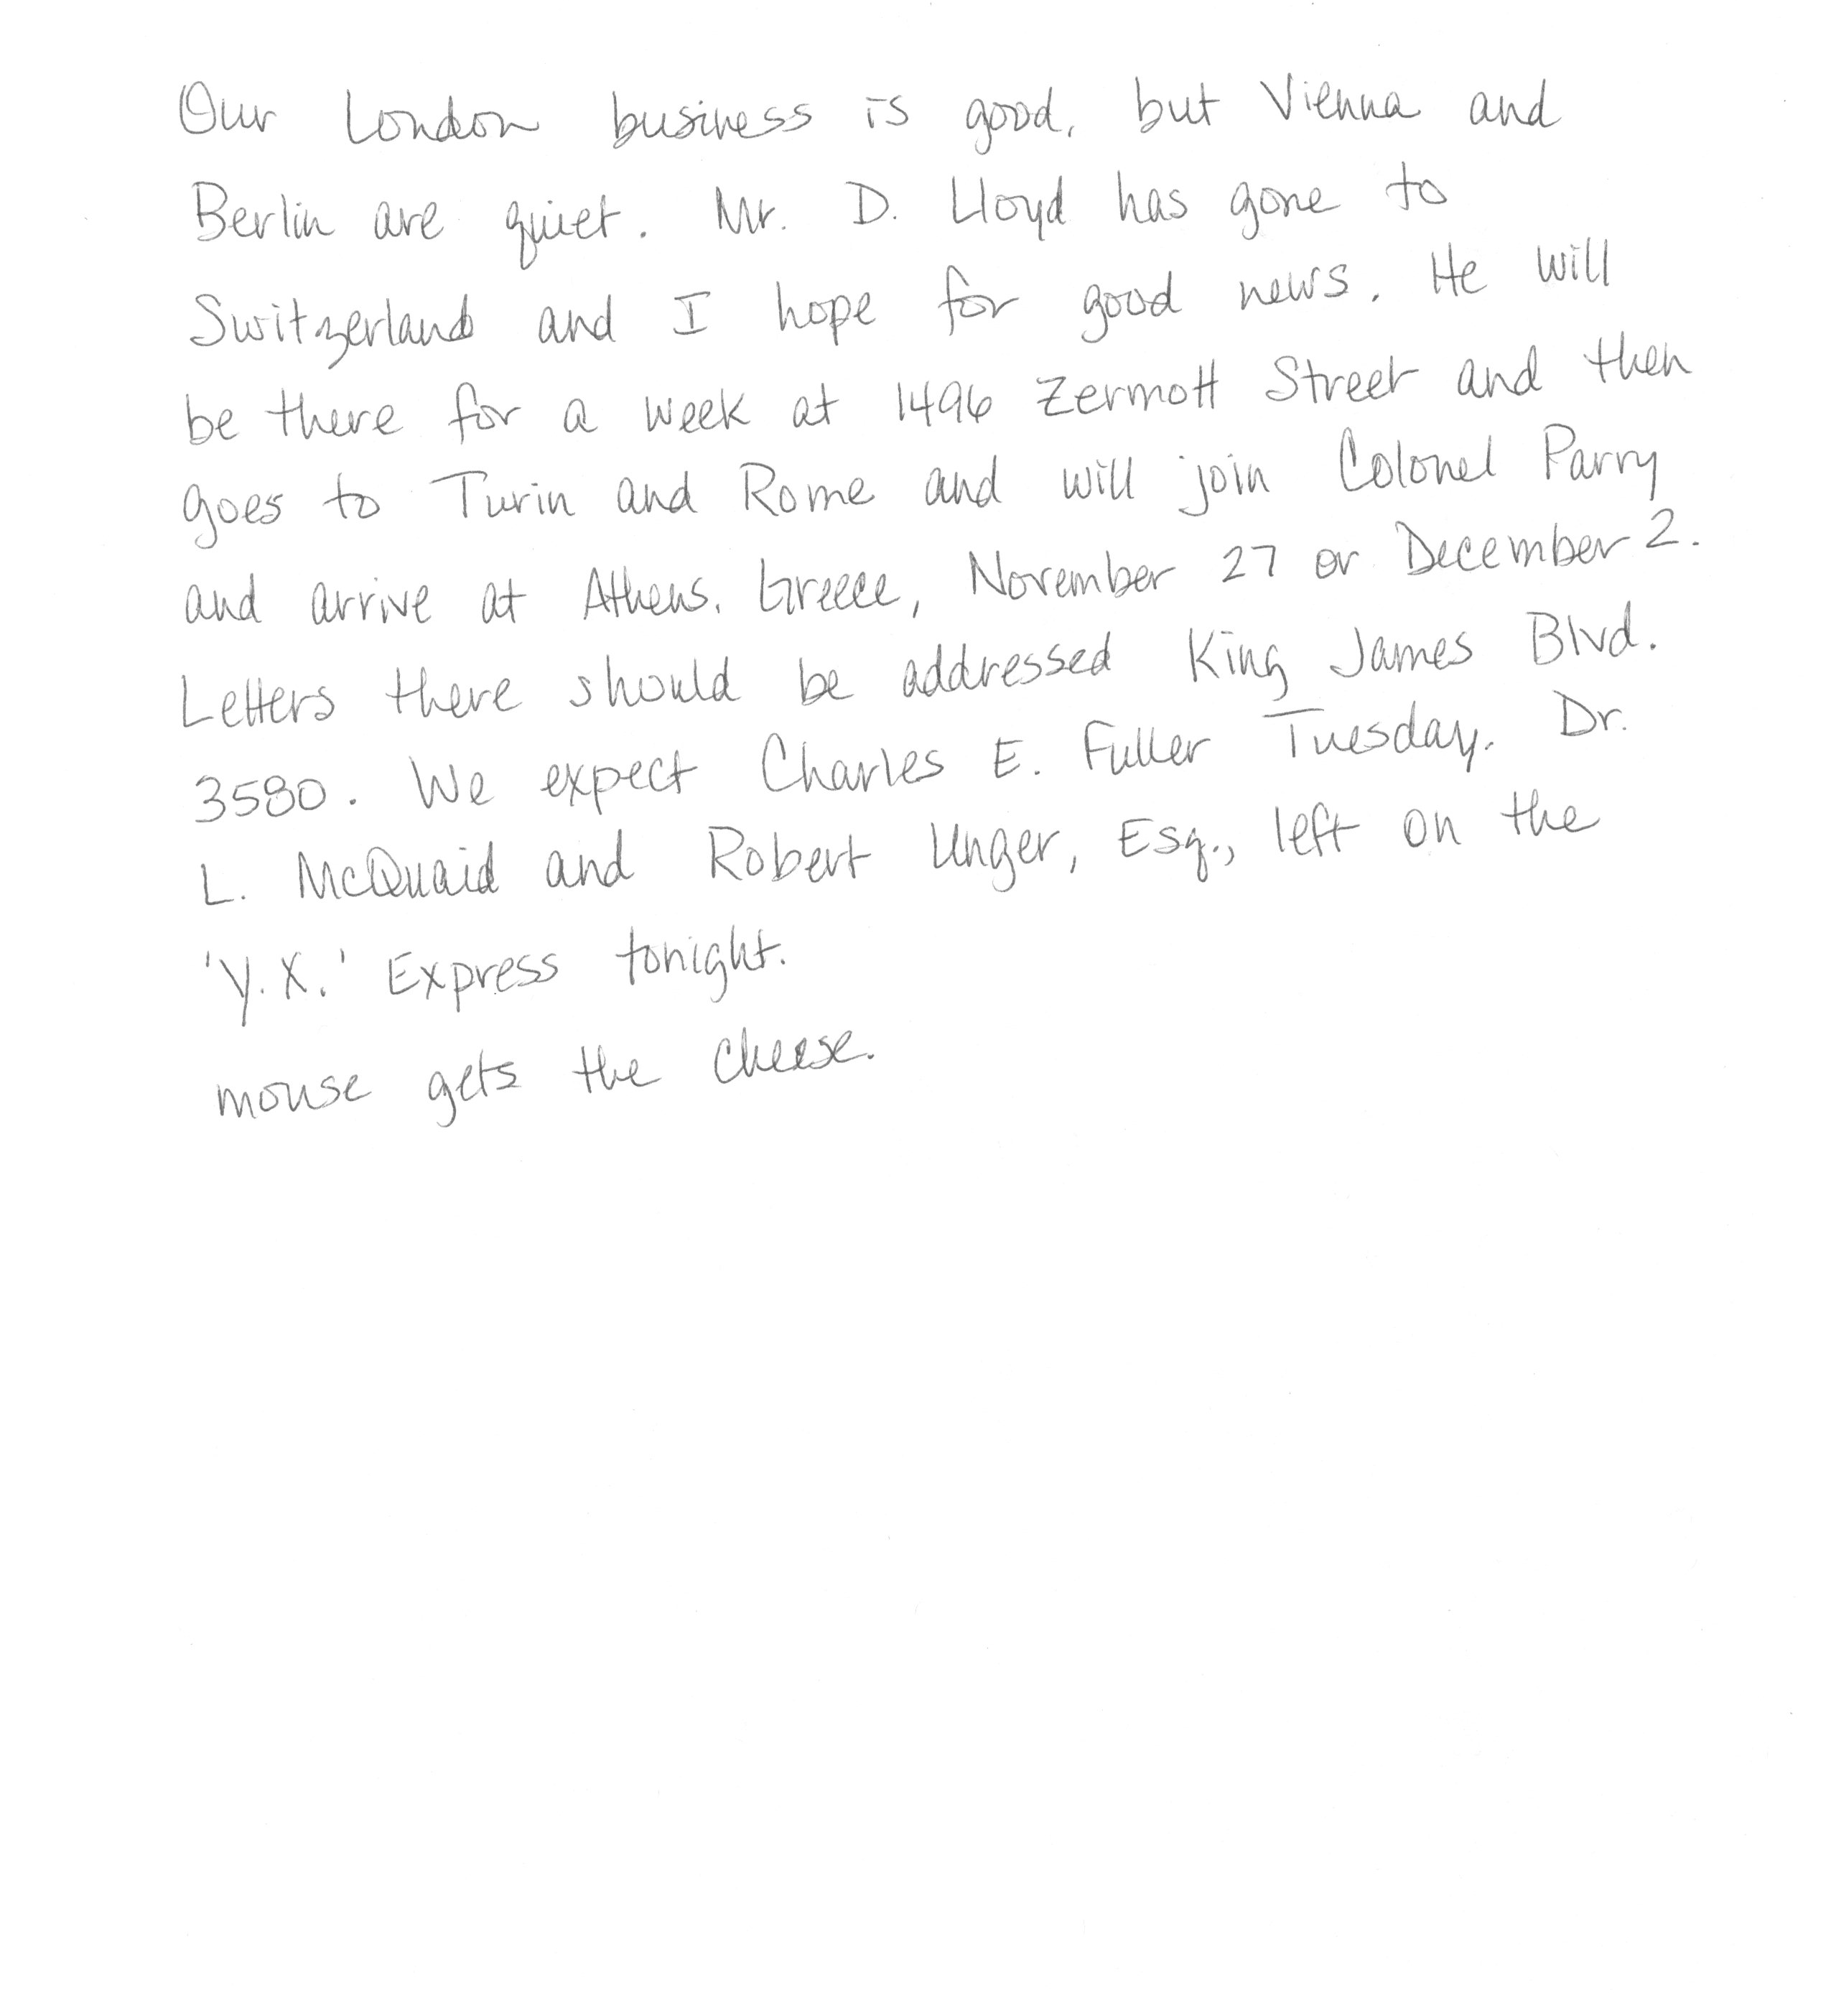 Our London business is good, but Vienna and
Berlin are quiet. Mr. D. Lloyd has gone to
Switzerland and I hope for good news. He will
be there for a week at 1496 Zermott Street and then
goes to Turin and Rome and will join Colonel Parry
and arrive at Athens, Greece, November 27 or December 2.
Letters there should be addressed King James Blvd.
3580. We expect Charles E. Fuller Tuesday. Dr.
L. McQuaid and Robert Unger, Esq., left on the
'Y.X.' Express tonight.
mouse gets the cheese.